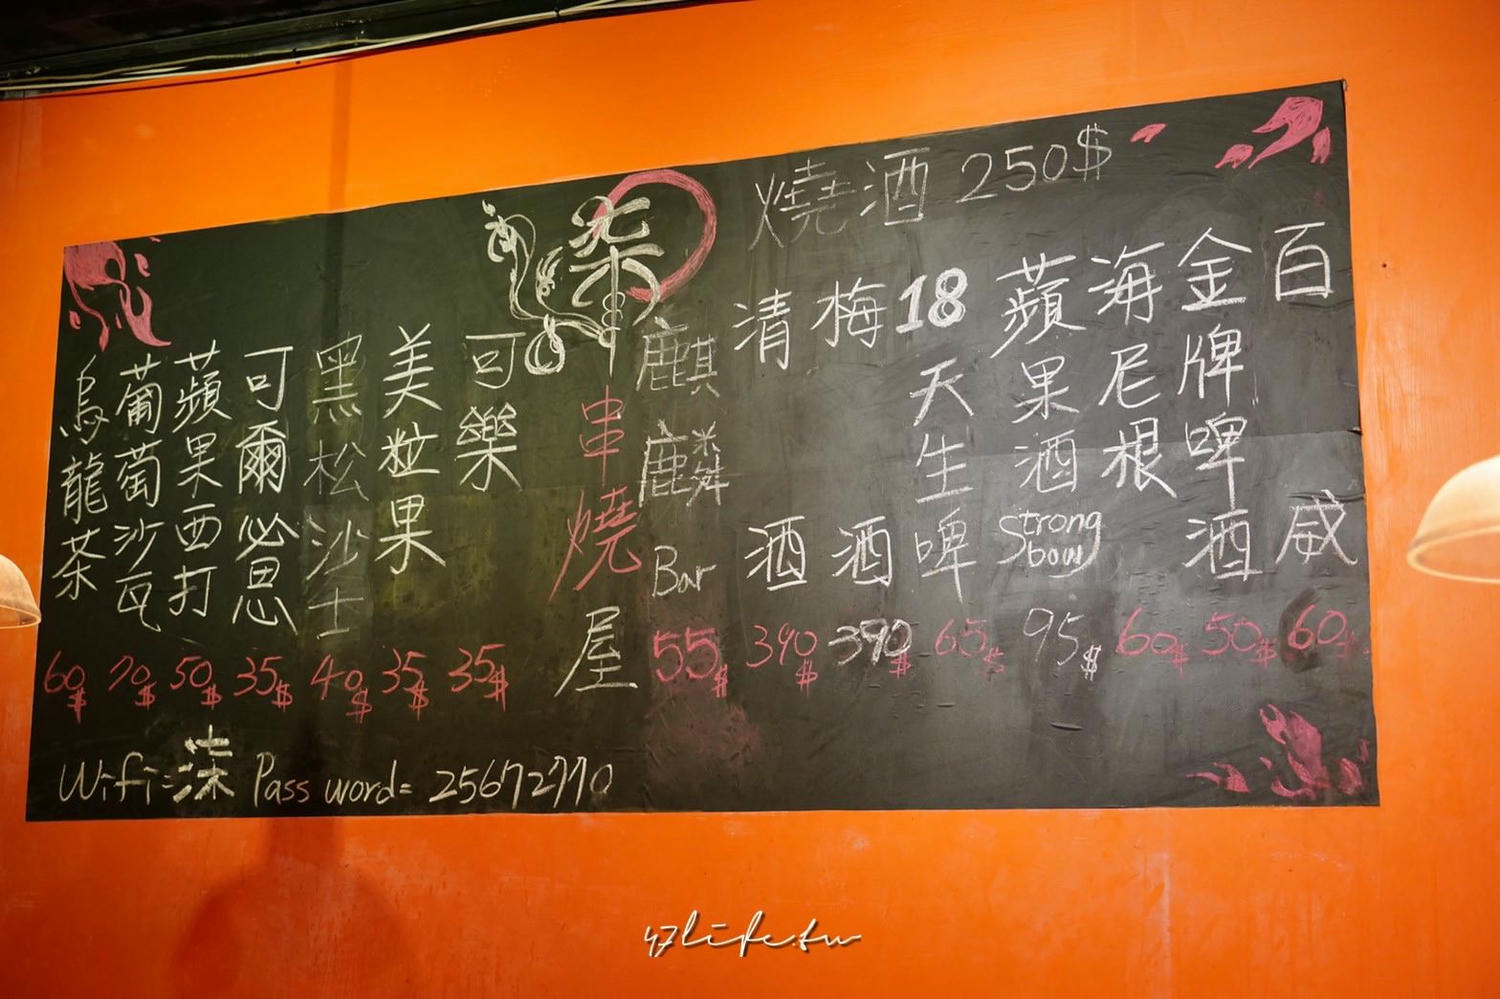 燒酒 250$
百威 60$
金牌啤酒 50$
海尼根 60$
蘋果酒 Strong bow 95$
18天生啤 65$
梅酒 390$
清酒 390$
麒麟 Bar 55$
柒串燒屋
可樂 35$
美粒果 35$
黑松沙士 40$
可爾必思 35$
蘋果西打 50$
葡萄沙瓦 70$
烏龍茶 60$
Wifi=柒 Password=25672770
47life.tw